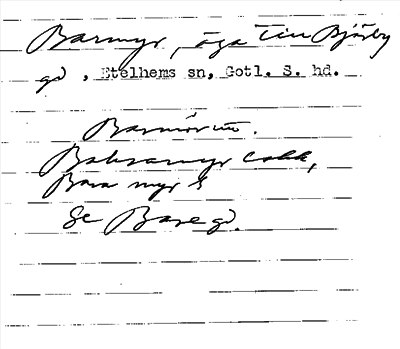 Barmyr, äga till Bjärby
gd, Etelhems sn, Gotl. S. hd.
Barmör
Bakramyr
Bara myr
Se Bare gd.